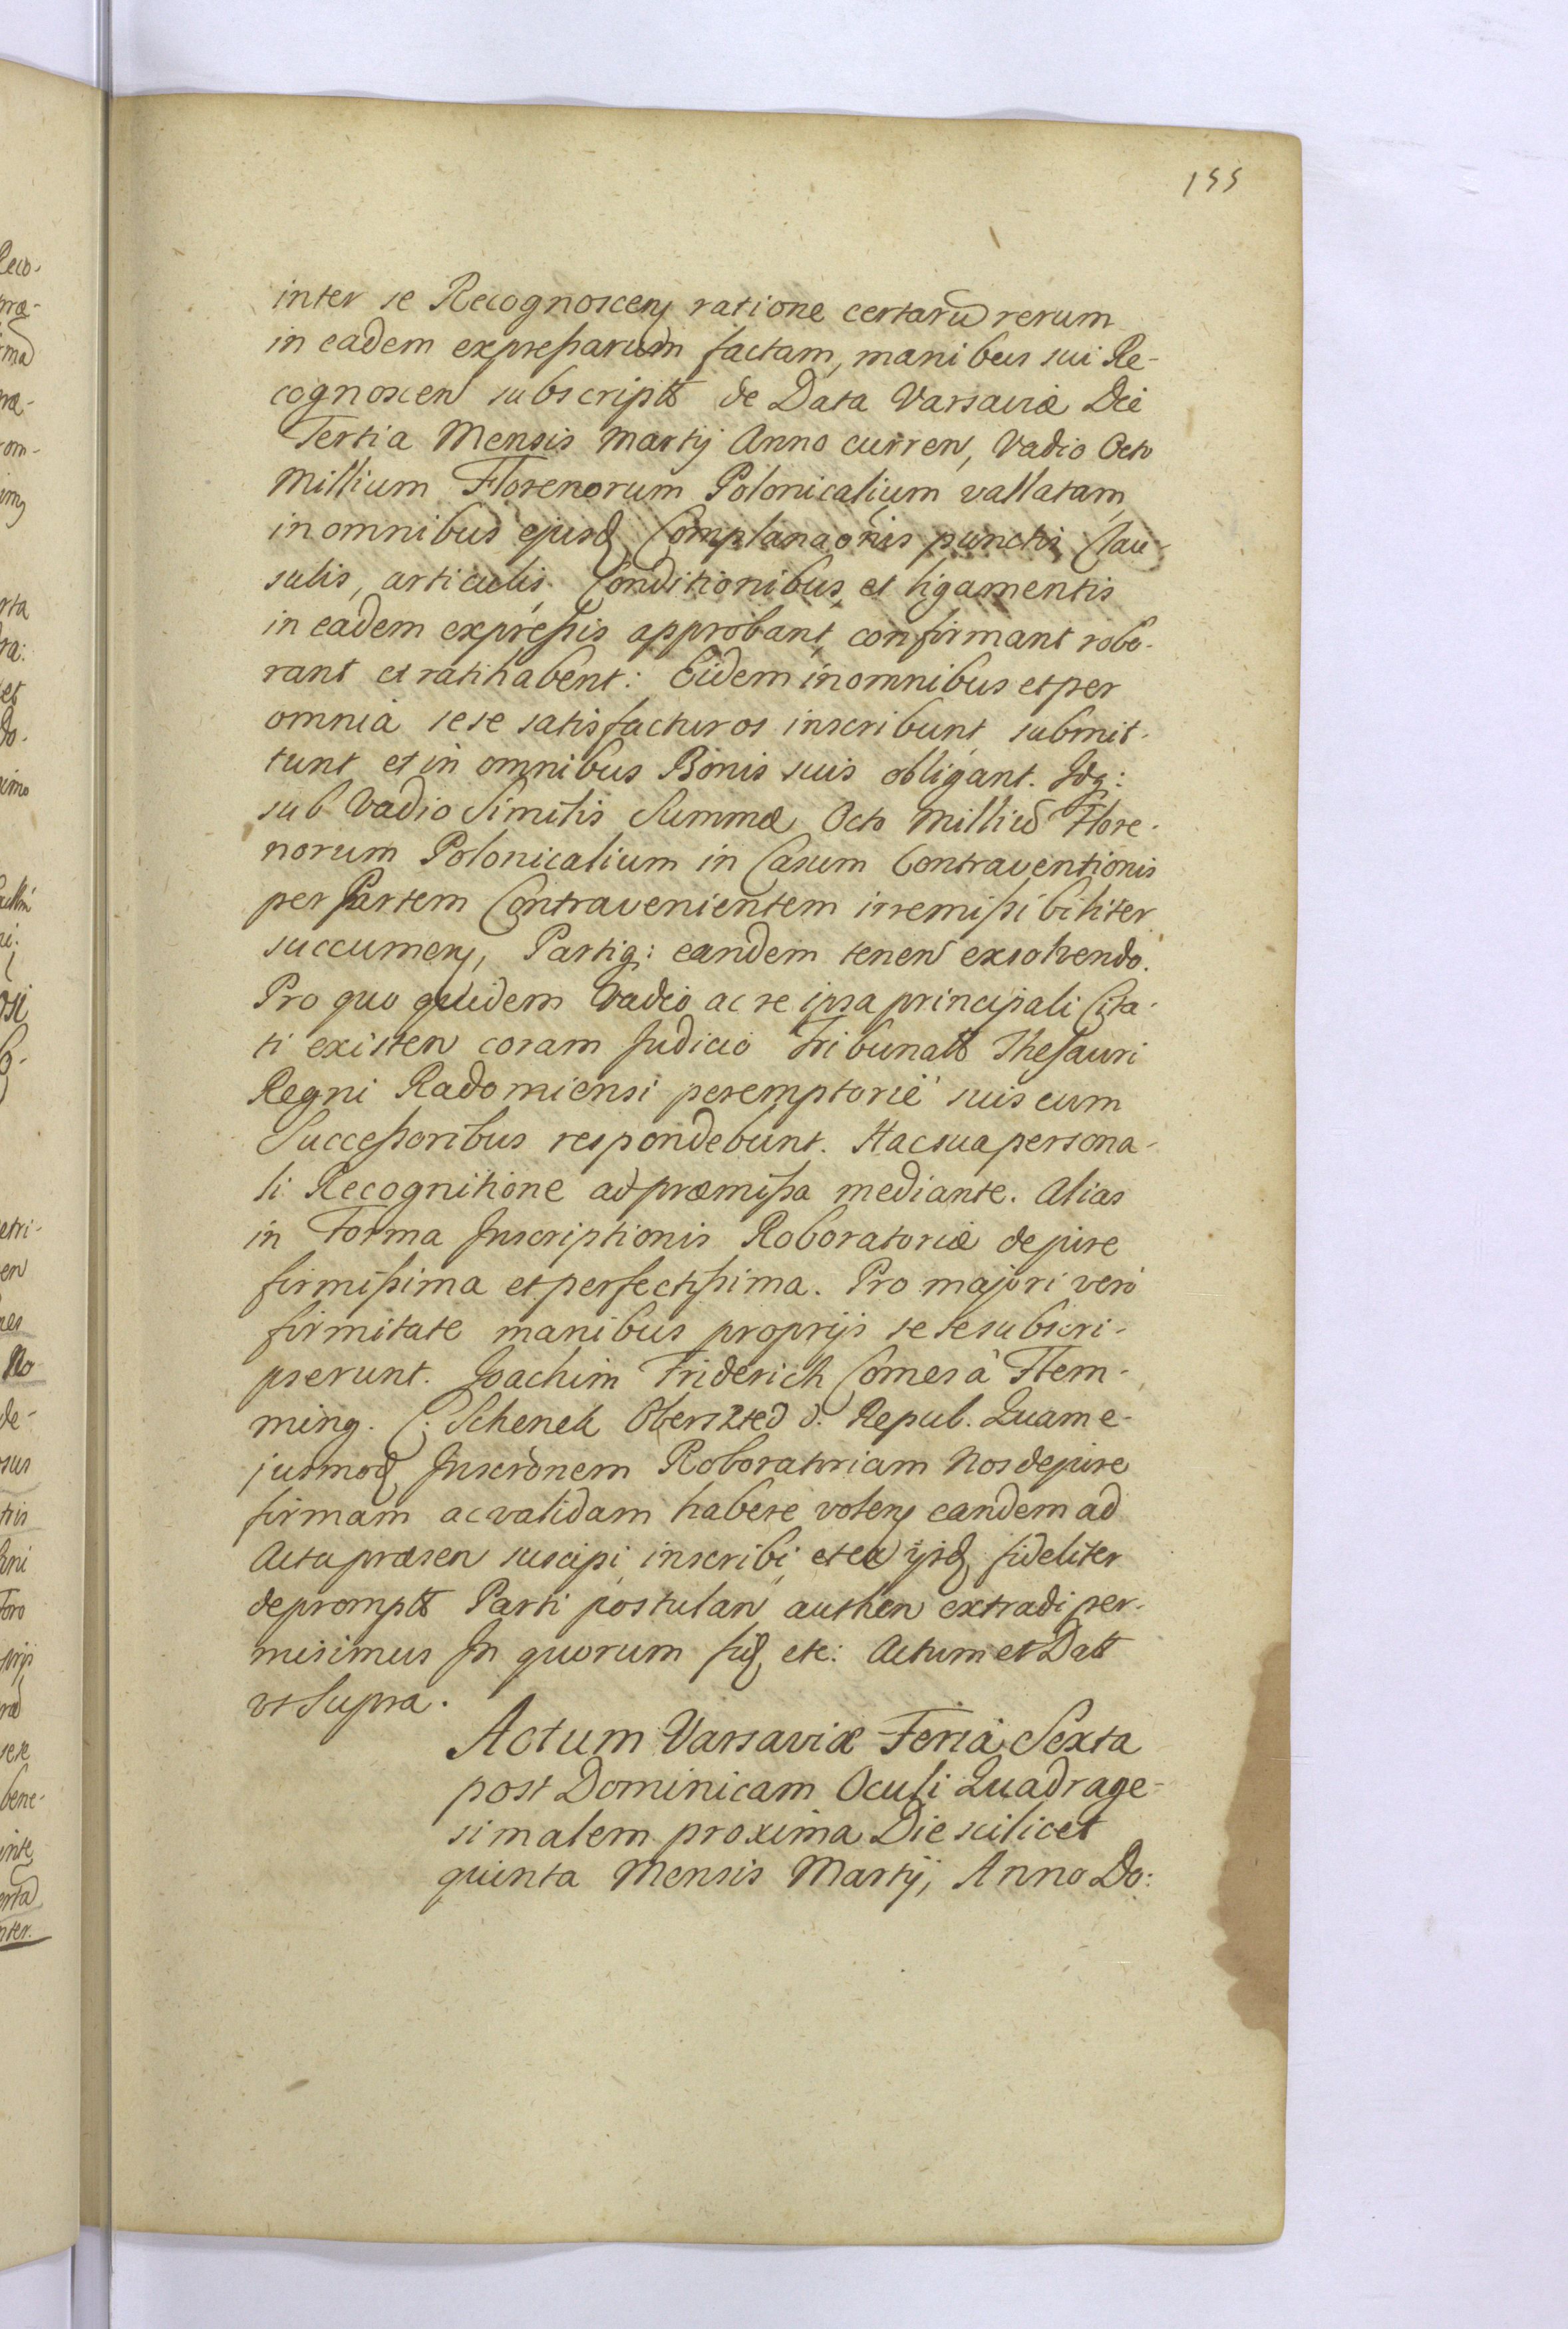 155
inter se Recognoscen ratione certarũ rerum
in eadem expreßarum factam, manibus sui Re-
cognoscen subscriptt de Data Varsaviæ Die
Tertia Mensis Martij Anno curren, Vadio Octo
Millium Florenorum Polonicalium vallatam,
in omnibus ejusd Complanaonis punctis, Clau-
sulis, articulis, Conditionibus, et ligamentis
in eadem expreßis approbant, confirmant robo-
rant et ratihabent: Eidem in omnibus et per
omnia sese satisfacturos inscribunt, submit-
tunt et in omnibus Bonis suis obligant. Idq:
sub Vadio Similis Summæ Octo Milliũ Flore-
norum Polonicalium in Casum Contraventionis
per Partem Contravenientem irremißibiliter
succumen, Partiq: eandem tenen exolvendo.
Pro quo quidem Vadio ac re ipsa principali Cita-
ti existen coram Judicio Tribunalt Thesauri
Regni Radomiensi peremptorie suis cum
Succeßoribus respondebunt. Hac sua persona-
li Recognitione ad præmißa mediante. Alias
in Forma Inscriptionis Roboratoriæ de jure
firmißima et perfectißima. Pro majori verò
firmitate manibus proprijs sese subscri-
pserunt. Joachim Friderich Comes à Flem-
ming. C: Schenek Oberszted d. Repub. Quam e-
jusmod Inscrònem Roboratoriam Nos de jure
firmam ac validam habere volen eandem ad
Acta præsen suscipi, inscribi, et ex ijsd fideliter
depromptt Parti postulan authen extradi per-
misimus In quorum fid etc: Actum et Datt
vt Supra.
Actum Varsaviæ Feria Sexta
post Dominicam Oculi Quadrage-
simalem proxima Die scilicet
quinta Mensis Martij, Anno Do: